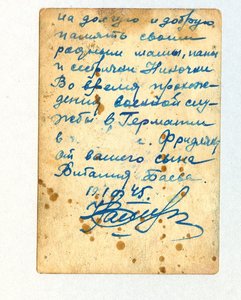 на долгую и добрую
память своим
родным мамы, папы
и сестрички Ниночки
Во время прохож-
дения военной слу-
жбы в Германии
в г. Фридлен
от вашего сына
Виталия Басса
45